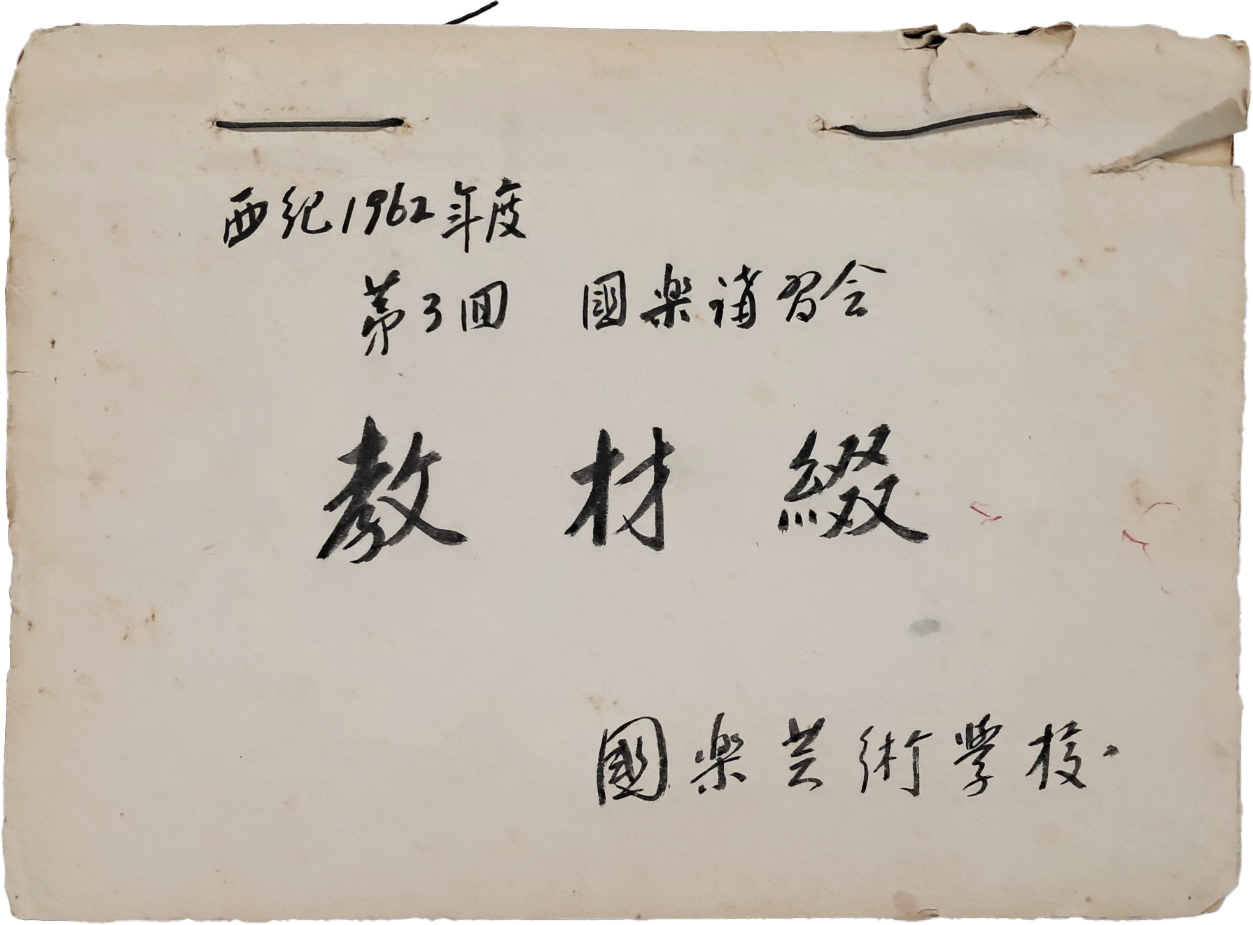 西紀1962年度
第3回 國楽講習会
教材綴
國楽芸術学校.